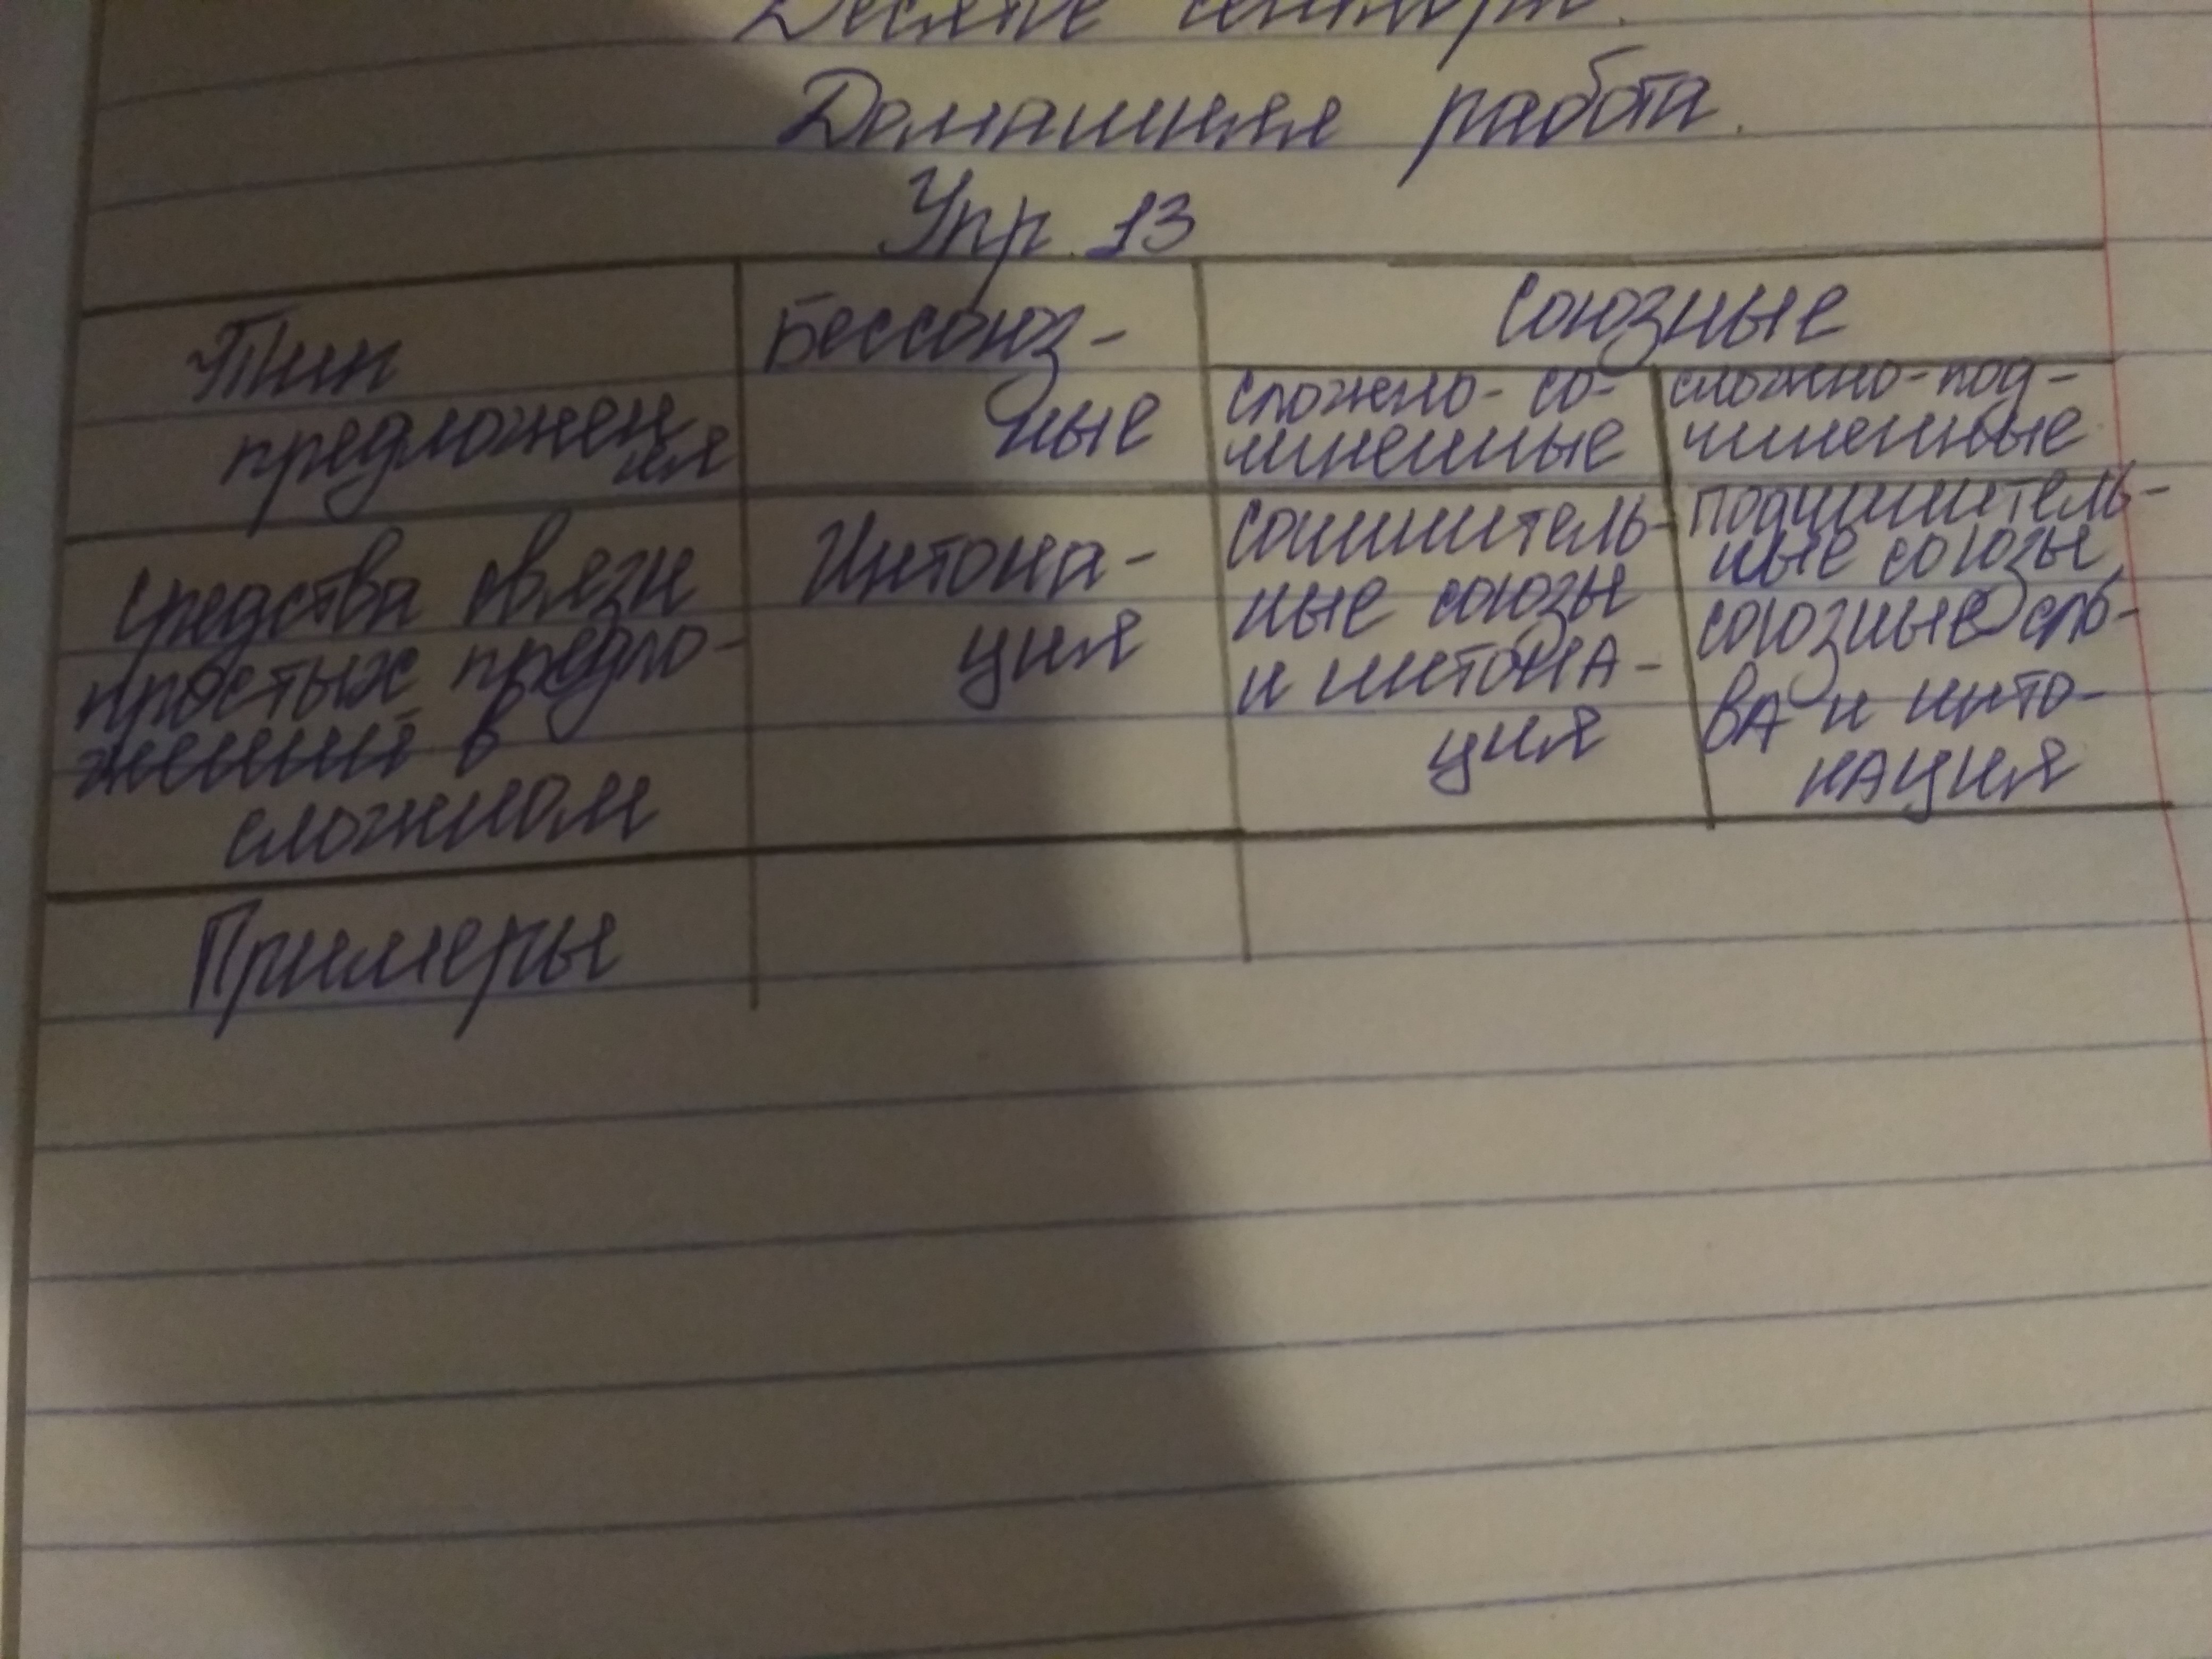 Десяте сентября.
Домашняя работа.
Упр. 13
Тип
предложен
ия
Бессоюз-
ные
Союзные
сложно-со-
чиненные
сложно-под-
чиненные
Средства связи
простых предло-
жений в
сложном
Интона-
ция
Сочинитель-
ные союзы
и интона-
ция
Подчинитель-
ные союзы
союзные сло-
ва и инто-
нация
Примеры